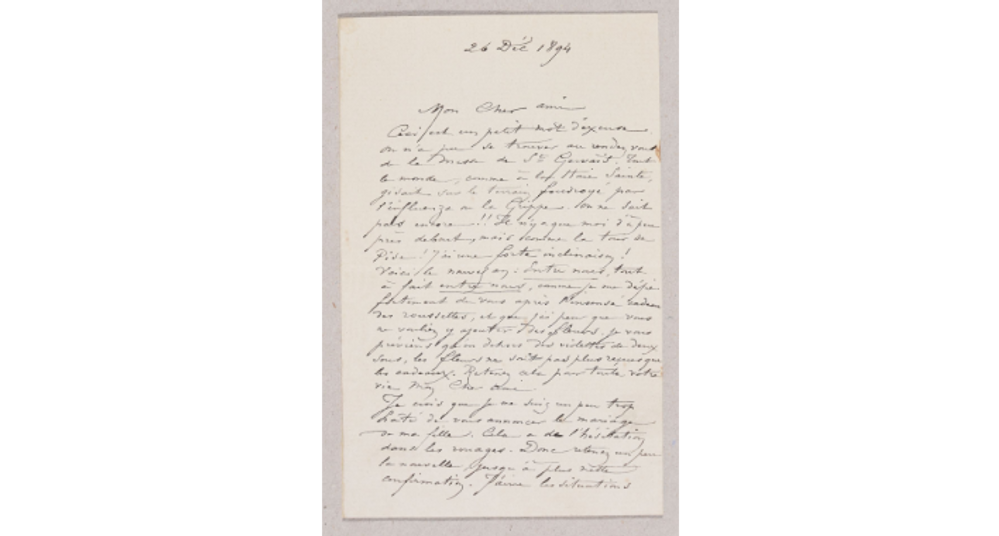 26 Déc 1894
Mon Cher ami
Ceci est un petit mot d'excuse
on n'a pu se trouver au rendez vous
de la messe de St Gervais. Tout
le monde, comme à la Haie Sainte,
gisait sur le terrain foudroyé par
l'influenza ou la Grippe. on ne sait
pas encore!! Il n'y a que moi d'à peu
près debout, mais comme la tour de
Pise! J'ai une forte inclinaison!
Voici le nouvel an: Entre nous, tout
à fait entre nous, comme je me défie
fortement de vous après l'insensé cadeau
des roussettes, et que j'ai peur que vous
ne vouliez y ajouter des fleurs, je vous
préviens qu'en dehors des violettes de deux
sous, les fleurs ne sont pas plus reçues que
les cadeaux. Retenez cela pour toute votre
vie Mon Cher ami
Je crois que je me suis un peu trop
hâté de vous annoncer le mariage
de ma fille. Cela a de l'hésitation
dans les rouages. Donc retenez un peu
la nouvelle, jusqu'à plus nette
confirmation. J'aime les situations